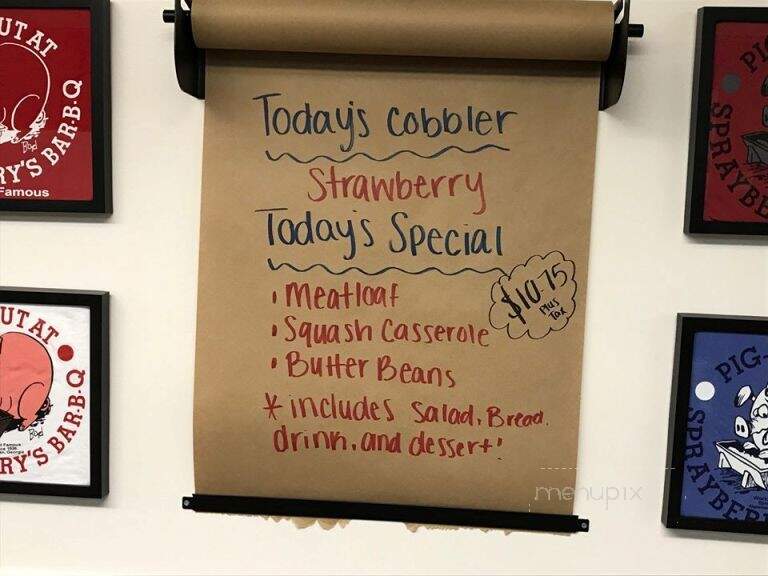 Today's Cobbler
Strawberry
Today's Special
• Meatloaf
• Squash Casserole
• Butter Beans
$10.75
Plus
Tax
* includes Salad, Bread,
drink, and dessert!
UT AT
RY'S BAR-B-Q
Famous
UT AT
RY'S BAR-B-Q
PI
SPRAYBE
PIG-
SPRAYBER
menupix